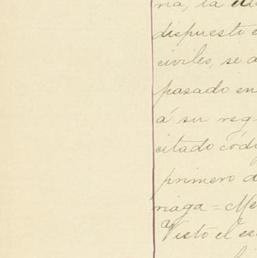 ria, la
dispuesto
civiles, se a
pasado en
á su reg
citado códi
primero d
riaga = Me
Visto el es